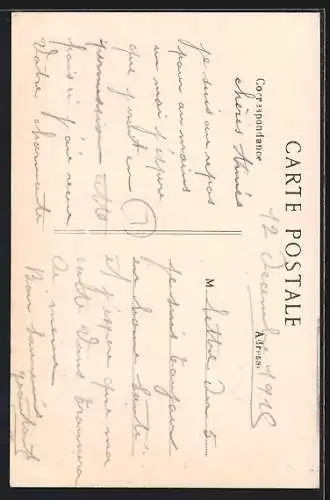 CARTE POSTALE
Correspondance
Adresse
12 Decembre 1918
chères Amies
je suis au repos
pour au moins
un mois j'espère
que j'irai en
permission
mais j'ai reçu
Votre charmante
M lettre du 5
je suis toujours
en bonne Santé
et j'espère que ma
carte Vous trouvera
de meme
Bon